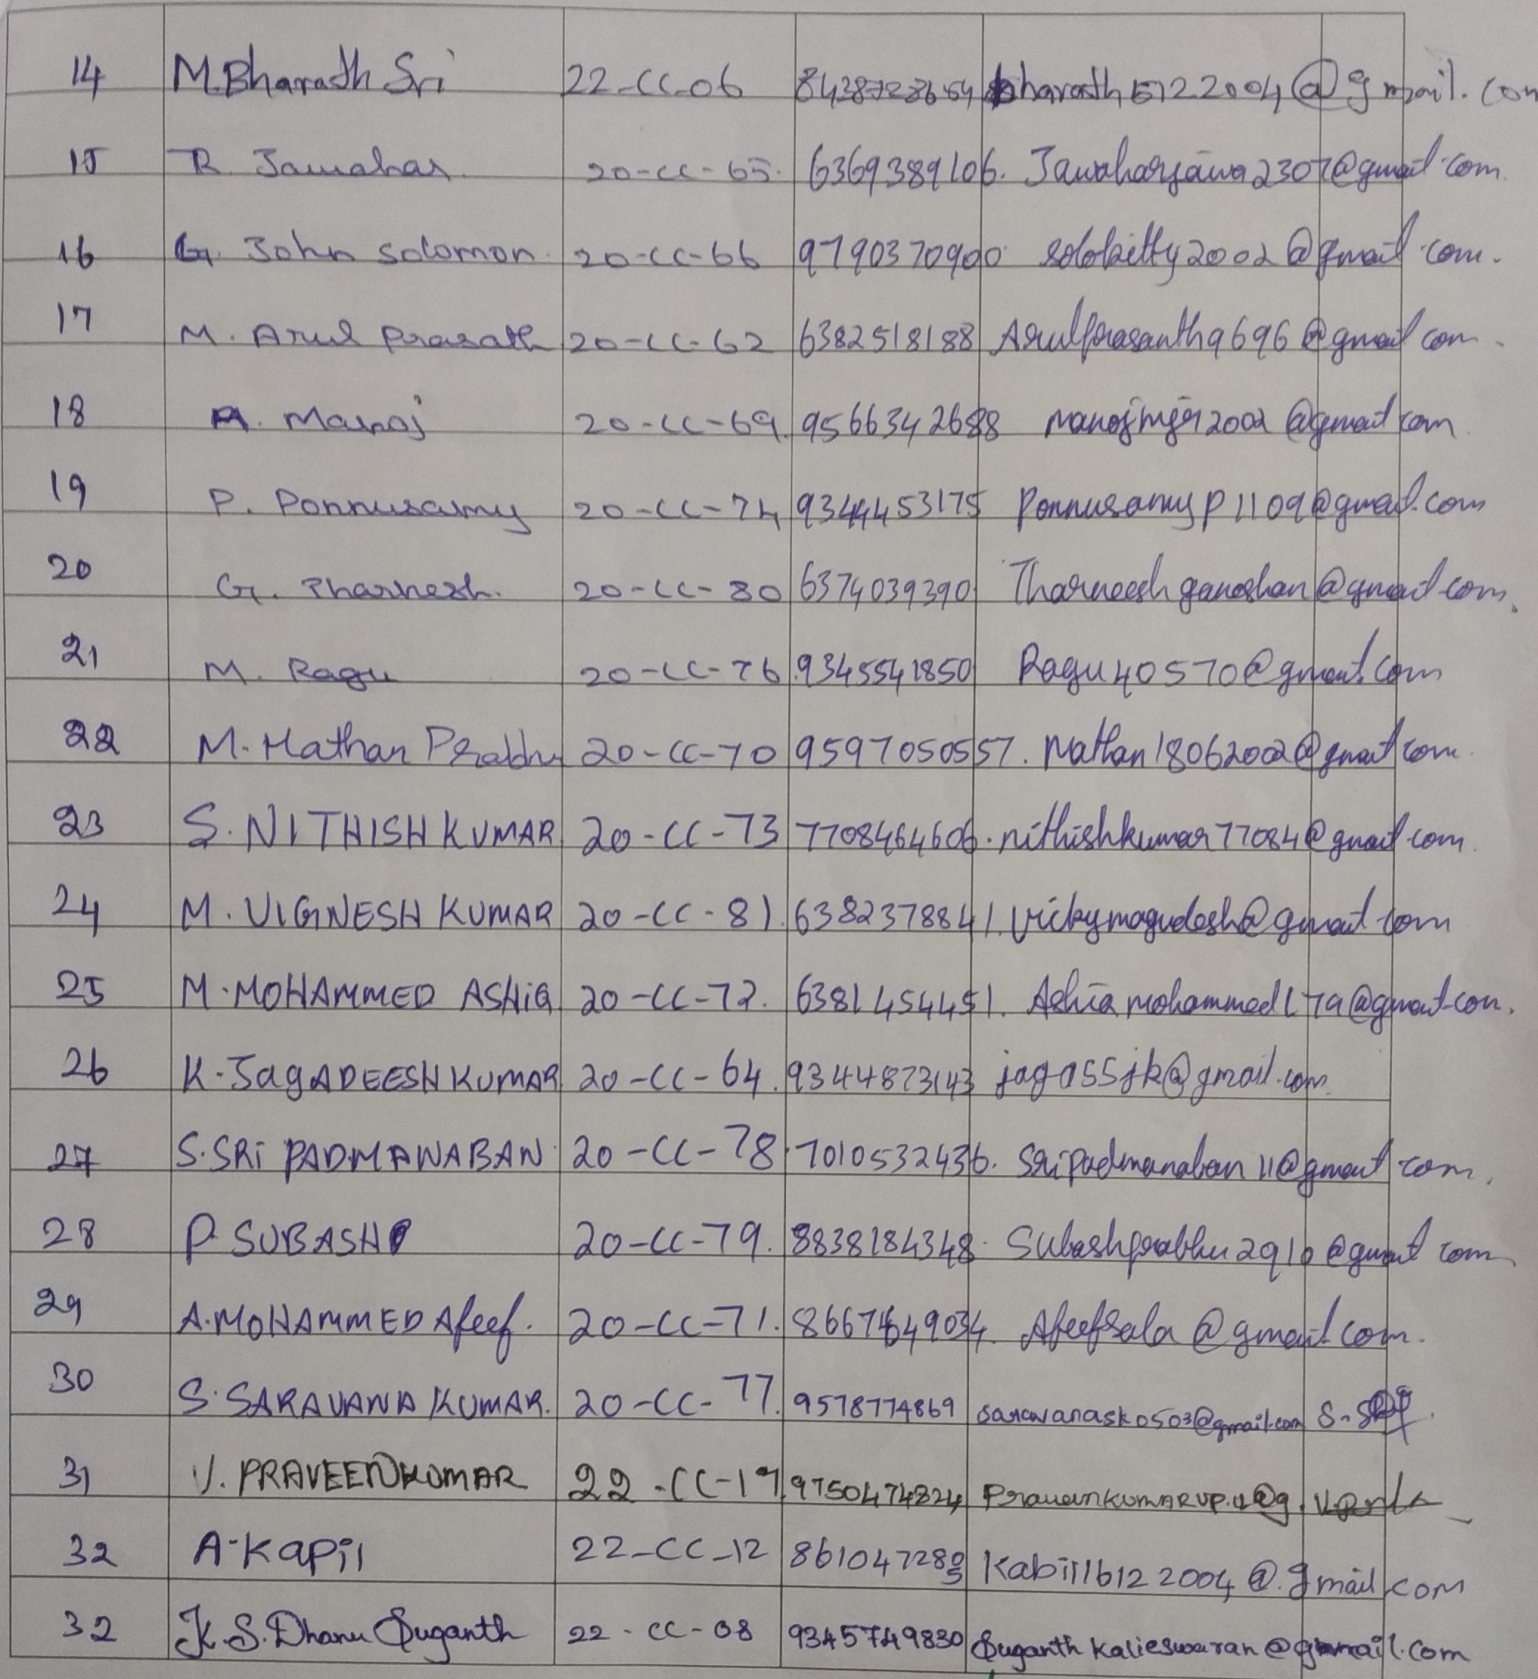 14 M.Bharadh Sri 22-CC-06 8438723654 bharath5122004@gmail.com
15 R. Jawahar. 20-CC-65. 6369389106. Jawaharjawa2307@gmail.com.
16 G. John Solomon. 20-CC-66 9790370900 solokitty2002@gmail.com.
17 M. Arul Prasath 20-CC-62 6382518188 Arulprasanth9696@gmail.com.
18 A. Manoj 20-CC-69. 9566342688 manojmgr2002@gmail.com
19 P. Ponnusamy 20-CC-74 9344453175 PonnusamyP1109@gmail.com
20 G. Tharnesh. 20-CC-80 6374039390 Tharneeshganeshan@gmail.com.
21 M. Ragu 20-CC-76 9345541850 Ragu40570@gmail.com
22 M. Mathan Prabhu 20-CC-70 9597050557. Mathan18062002@gmail.com.
23 S. NITHISH KUMAR 20-CC-73 7708464606. nithishkumar77084@gmail.com.
24 M. VIGNESH KUMAR 20-CC-81. 6382378841. Vickymagudesh@gmail.com
25 M. MOHAMMED ASHIQ 20-CC-72. 6381454451. Ashiamohammed179@gmail.com.
26 K. JagADEESH KUMAR 20-CC-64. 9344873143 jaga55jk@gmail.com.
27 S. SRi PADMANABAN 20-CC-78 7010532436. Sripadmanaban11@gmail.com.
28 P. SUBASH 20-CC-79. 8838184348. Subashprabhu2910@gmail.com
29 A. MOHAMMED Afeef. 20-CC-71. Afeefsala@gmail.com.
30 S. SARAVANA KUMAR. 20-CC-77. 9578774869 saravanask0503@gmail.com
31 V. PRAVEENKUMAR 22-CC-19 9750474824
32 A. Kapil 22-CC-12 Kabil16122004@.gmail.com
32 K.S. Dhanu Suganth 22-CC-08 9345749830 Suganthkalieswaran@gmail.com